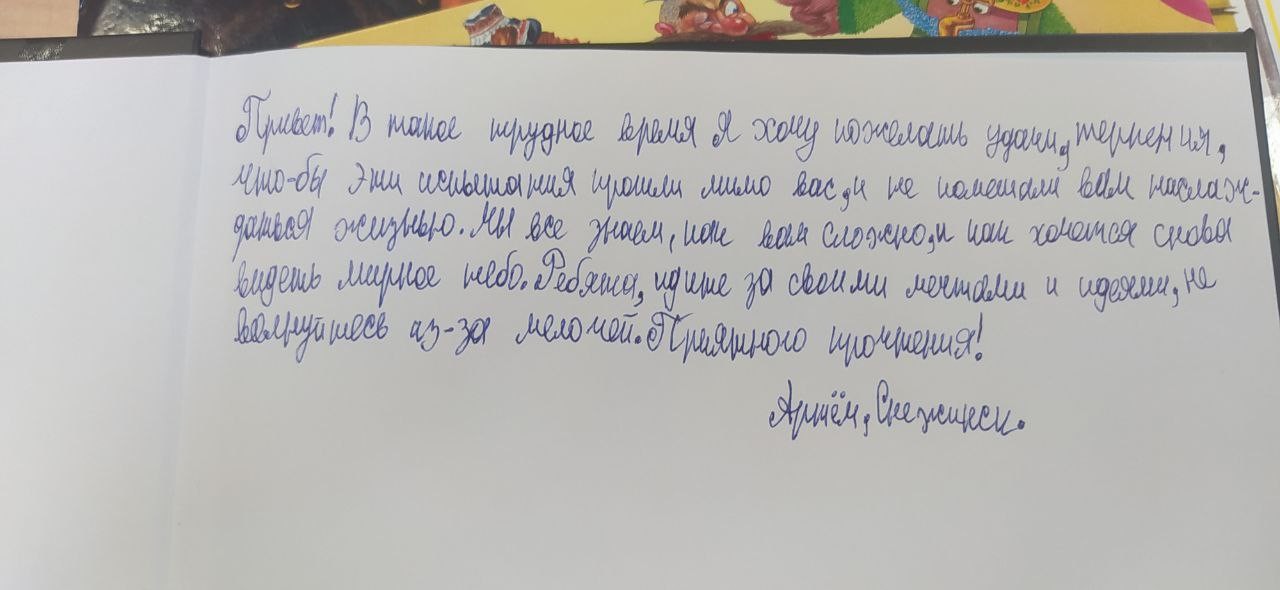 Привет! В такое трудное время я хочу пожелать удачи, терпения,
что-бы эти испытания прошли мимо вас, и не помешали вам наслаж-
даться жизнью. Мы все знаем, как вам сложно, и как хочется снова
видеть мирное небо. Ребята, идите за своими мечтами и идеями, не
волнуйтесь из-за мелочей. Приятного прочтения!
Артём, Снежинск.